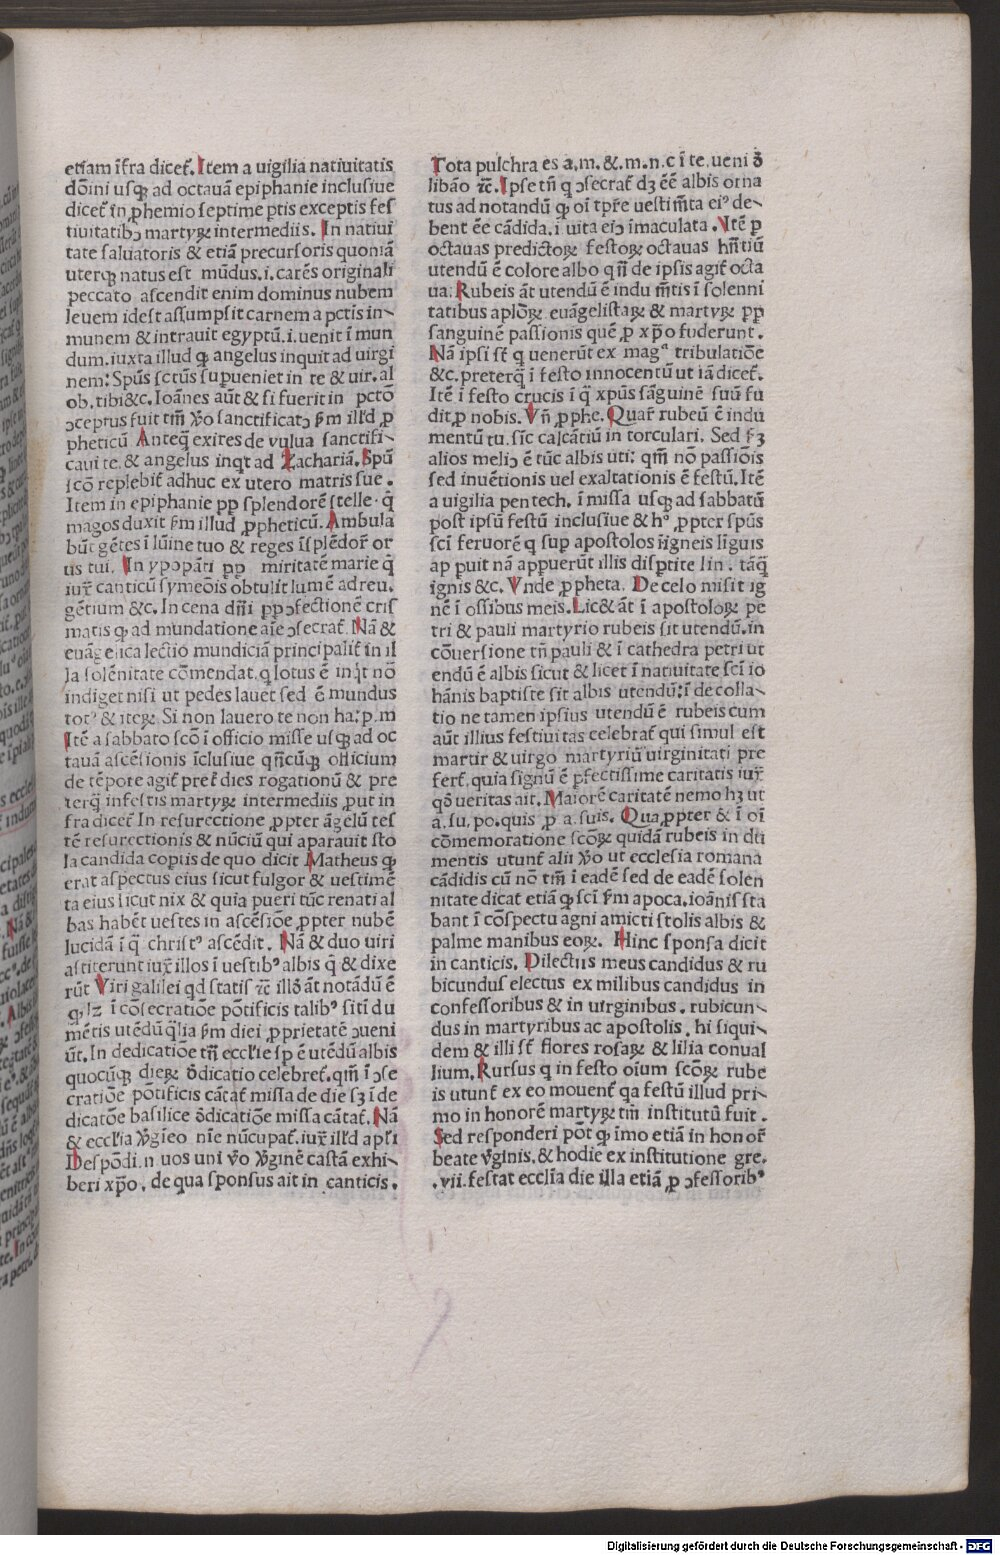 etiam īfra dicet᷒. Item a uigilia natiuitatis
dōini usqꝫ ad octauā epiphanie inclusiue
dicet᷒ in ꝓhemio septime ꝑtis exceptis fes
tiuitatibꝰ martyꝝ intermediis. In natiui
tate saluatoris & etiā precursoris quoniā
uterqꝫ natus est mūdus.i.carēs originali
peccato ascendit enim dominus nubem
leuem idest assumpsit carnem a pctis in-
munem & intrauit egyptū.i.uenit ī mun
dum.iuxta illud qꝫ angelus inquit ad uirgi
nem: Spūs sctūs supueniet in te & uir.al
ob.tibi&c. Ioānes aūt & si fuerit in pctō
ꝯceptus fuit tm̄ ꝟo sanctificatꝰ ẜm illd̄ ꝓ
pheticū. Anteq̄ exires de vulua sanctifi-
caui te. & angelus inqt ad Zachariā. Spū
scō replebit᷒ adhuc ex utero matris sue.
Item in epiphanie ꝓp splendorē stelle. q̄
magos duxit ẜm illud ꝓpheticū. Ambula
būt gētes ī lūine tuo & reges īsplēdor᷒ or
tus tui. In ypopāti ꝓp miritatē marie q̄
iux̄ canticū symeōis obtulit lumē ad reu.
gētium &c. In cena dn̄i ꝓp ꝯfectionē cris
matis qꝫ ad mundatione aīe ꝯsecrat᷒. Nā &
euāgelica lectio mundiciā principalit᷒ in il
la solēnitate cōmendat.q lotus ē inq̇t nō
indiget nisi ut pedes lauet sed ē mundus
totꝰ & iteꝝ. Si non lauero te non ha:p.m
Itē a sabbato scō ī officio misse usqꝫ ad oc
tauā ascēsionis īclusiue qn̄cūqꝫ officium
de tēpore agit᷒ pret᷒ dies rogationū & pre
terq̄ in festis martyꝝ intermediis ꝓut in
fra dicet᷒ In resurectione ꝓpter āgelū tes
tē resurectionis & nūciū qui aparauit sto
la candida copiis de quo dicit Matheus qꝫ
erat aspectus eius sicut fulgor & uestimē
ta eius sicut nix & quia pueri tūc renati al
bas habēt uestes in ascēsiōe ꝓpter nubē
lucidā ī q̄ christꝰ ascēdit. Nā & duo uiri
astiterunt iux̄ illos ī uestibꝰ albis q̄ & dixe
rūt Viri galilei qd statis ⁊c̄ illð āt notādū ē
q.lꝫ ī cōsecratiōe pōtificis talibꝰ siti du
mētis utēdū q̄lia ẜm diei ꝓprietatē ꝯueni
ūt. In dedicatiōe tn̄ eccl̄ie sp ē utēdū albis
quocūqꝫ dieꝝ ð̄dicatio celebret᷒.qm̄ ī ꝯse
cratiōe pōtificis cātat᷒ missa de die sꝫ ī de
dicatōe basilice ð̄dicatiōe missa cātat᷒. Nā
& eccl̄ia ꝟgīeo nīe nūcupat᷒.iux̄ illd̄ apl̄i
Despōdi.n uos uni ꝟo ꝟginē castā exhi-
beri xp̄o. de qua sponsus ait in canticis.
Tota pulchra es a.m.&.m.n.c ī te.ueni ð̄
libāo ⁊c̄. Ipse tn̄ q ꝯsecrat᷒ dꝫ ēē albis orna
tus ad notandū qꝫ oī tp̄re uestim̄ta eiꝰ de-
bent ēe cādida.i uita eiꝰ īmaculata. Itē ꝑ
octauas predictoꝝ festoꝝ octauas hn̄tiū
utendū ē colore albo qn̄ de ipsis agit᷒ octa
ua. Rubeis āt utendū ē indum̄tis ī solenni
tatibus aplōꝝ euāgelistaꝝ & martyꝝ ꝓp
sanguinē passionis quē ꝓ xp̄o fuderunt.
Nā ipsi st̄ q uenerūt ex magª tribulatiōe
&c.preterq̄ ī festo innocentū ut iā dicet᷒.
Itē ī festo crucis ī q̄ xpūs sāguinē suū fu
dit ꝓ nobis. Vn̄ ꝓphe. Quar᷒ rubeū ē indu
mentū tu.sīc calcātiū in torculari. Sed ẜꝫ
alios meliꝰ ē tūc albis uti: qm̄ nō passiōis
sed inuētionis uel exaltationis ē festū. Itē
a uigilia pentech. ī missa usqꝫ ad sabbatū
post ipsū festū inclusiue & hº ꝓpter spūs
scī feruorē q sup apostolos īigneis līguis
ap puit nā appuerūt illis disꝑtite lin. tāq̄
ignis &c. Vnde ꝓpheta. De celo misit ig
nē ī ossibus meis. Lic& āt ī apostoloꝝ pe
tri & pauli martyrio rubeis sit utendū.in
cōuersione tn̄ pauli & ī cathedra petri ut
endū ē albis sicut & licet ī natiuitate scī io
hānis baptiste sit albis utendū:ī decolla-
tio ne tamen ipsius utendū ē rubeis cum
aūt illius festiuitas celebrat᷒ qui simul est
martir & uirgo martyriū uirginitati pre
fert᷒.quia signū ē ꝑfectissime caritatis iux̄
qð ueritas ait. Maiorē caritatē nemo hꝫ ut
a.su.po.quis ꝓ a.suis. Qua ꝓpter & ī oī
cōmemoratione scōꝝ quidā rubeis in du
mentis utunt᷒ alii ꝟo ut ecclesia romana
cādidis cū nō tm̄ ī eadē sed de eadē solen
nitate dicat etiā qꝫ scī ẜm apoca.ioānis sta
bant ī cōspectu agni amicti stolis albis &
palme manibus eoꝝ. Hinc sponsa dicit
in canticis. Dilectus meus candidus & ru
bicundus electus ex milibus candidus in
confessoribus & in uirginibus. rubicun-
dus in martyribus ac apostolis. hi siqui-
dem & illi st̄ flores rosaꝝ & lilia conual
lium. Rursus q in festo oīum scōꝝ rube
is utunt᷒ ex eo mouent᷒ qa festū illud pri-
mo in honorē martyꝝ tm̄ institutū fuit.
Sed responderi pōt qꝫ īmo etiā in honor᷒
beate ꝟginis.& hodie ex institutione gre.
.vii.festat ecclīa die illa etiā ꝓ ꝯfessoribꝰ
Digitalisierung gefördert durch die Deutsche Forschungsgemeinschaft - DFG